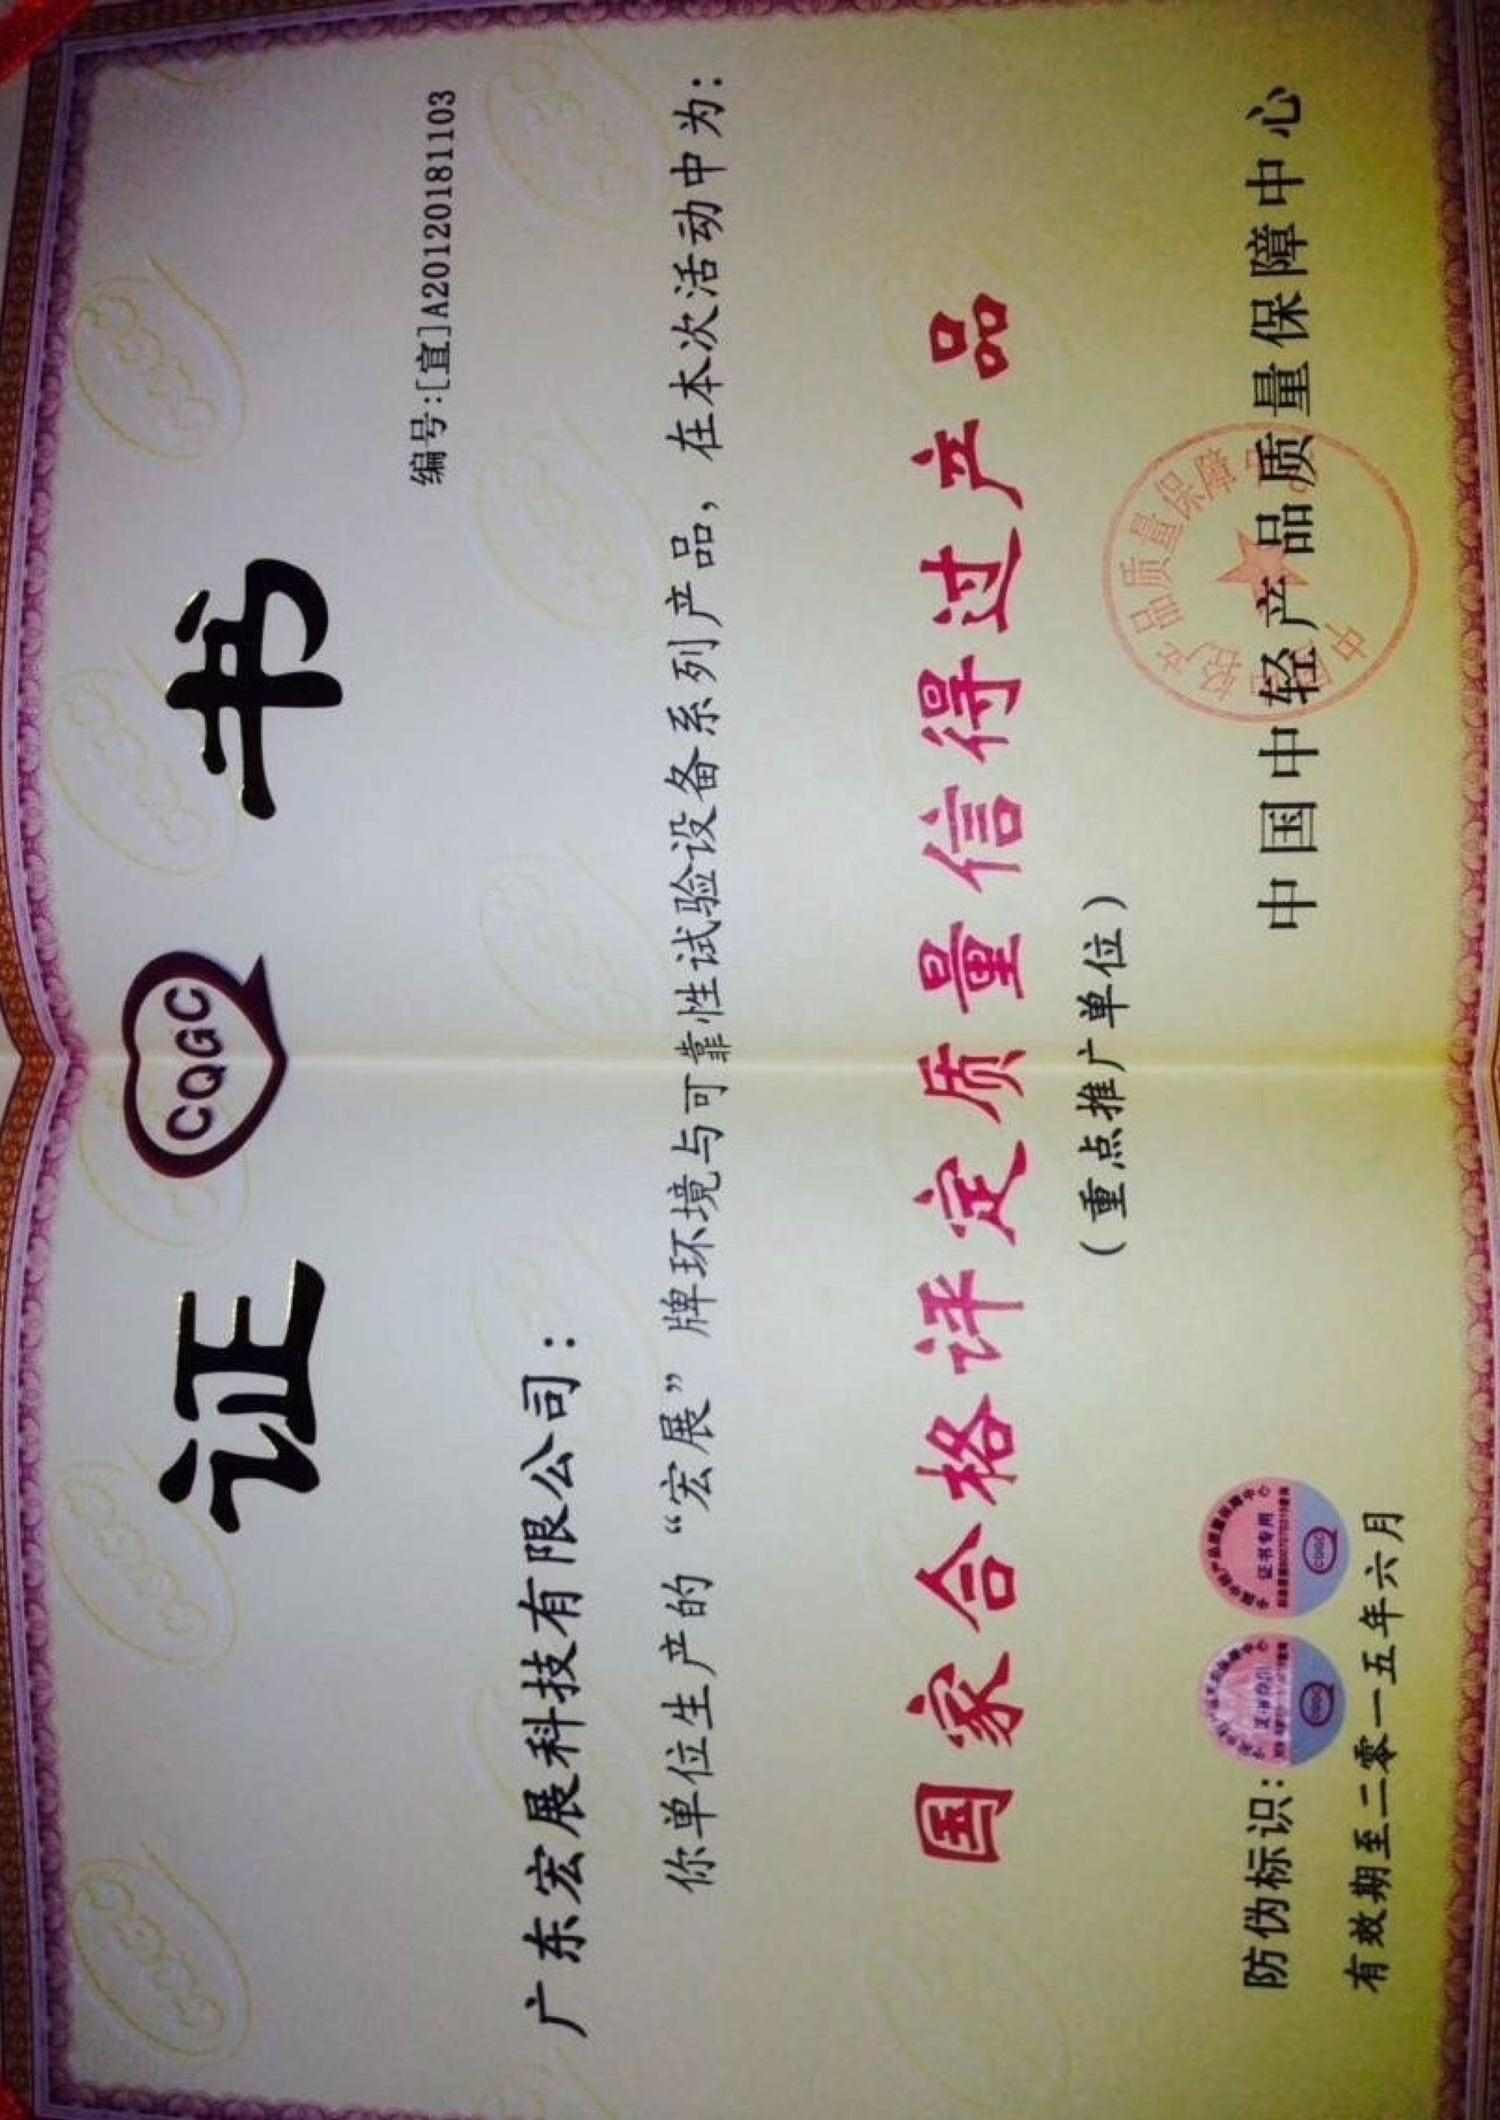 证 CQGC 书
编号:[宜]A20120181103
广东宏展科技有限公司:
你单位生产的“宏展”牌环境与可靠性试验设备系列产品,在本次活动中为:
国家合格评定质量信得过产品
(重点推广单位)
中国中轻产品质量保障中心
防伪标识:
证书专用
CQGC
有效期至二零一五年六月